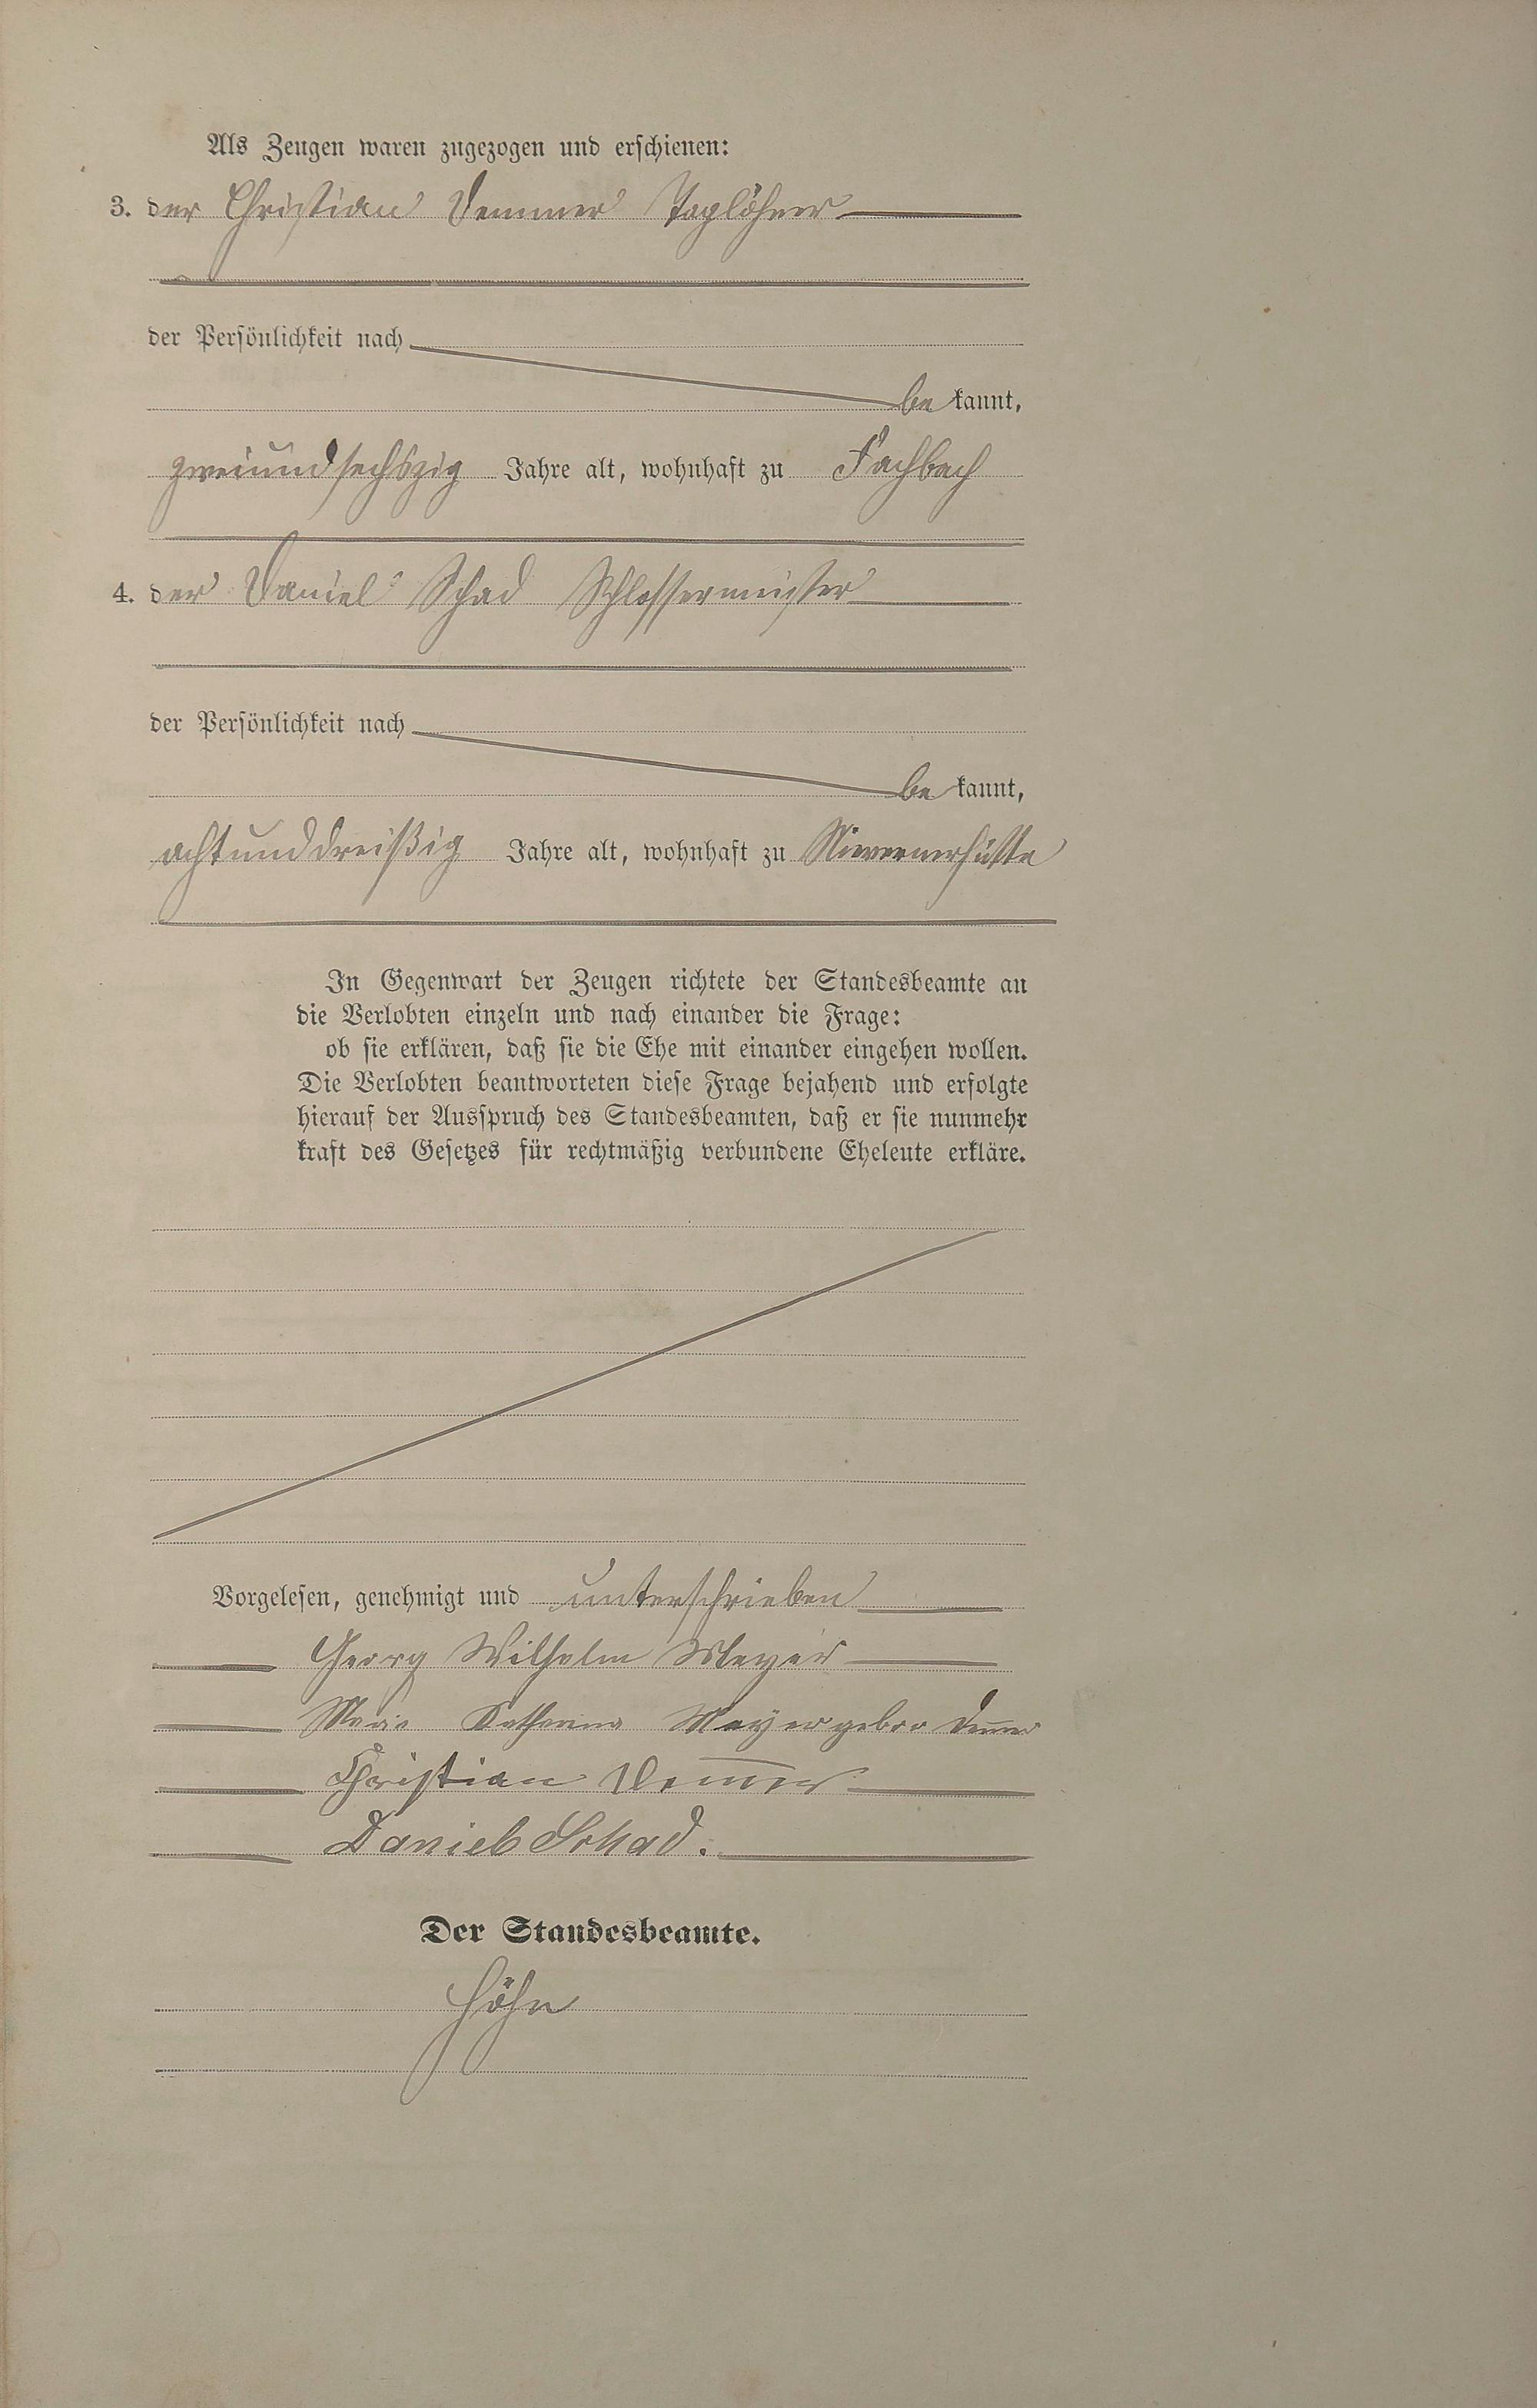 Als Zeugen waren zugezogen und erschienen:
3. der Christian Demmer Taglöhner
der Persönlichkeit nach
be kannt,
zweiundsechszig Jahre alt, wohnhaft zu Fachbach
4. der Daniel Schad Schlossermeister
der Persönlichkeit nach
be kannt,
achtunddreißig Jahre alt, wohnhaft zu Nievernerhütte
In Gegenwart der Zeugen richtete der Standesbeamte an
die Verlobten einzeln und nach einander die Frage:
ob sie erklären, daß sie die Ehe mit einander eingehen wollen.
Die Verlobten beantworteten diese Frage bejahend und erfolgte
hierauf der Ausspruch des Standesbeamten, daß er sie nunmehr
kraft des Gesetzes für rechtmäßig verbundene Eheleute erkläre.
Vorgelesen, genehmigt und unterschrieben
Georg Wilhelm Meyer
Maria Katharina Mayer gebor Dem̅er
Christian Dem̅er
Daniel Schad.
Der Standesbeamte.
Höhn